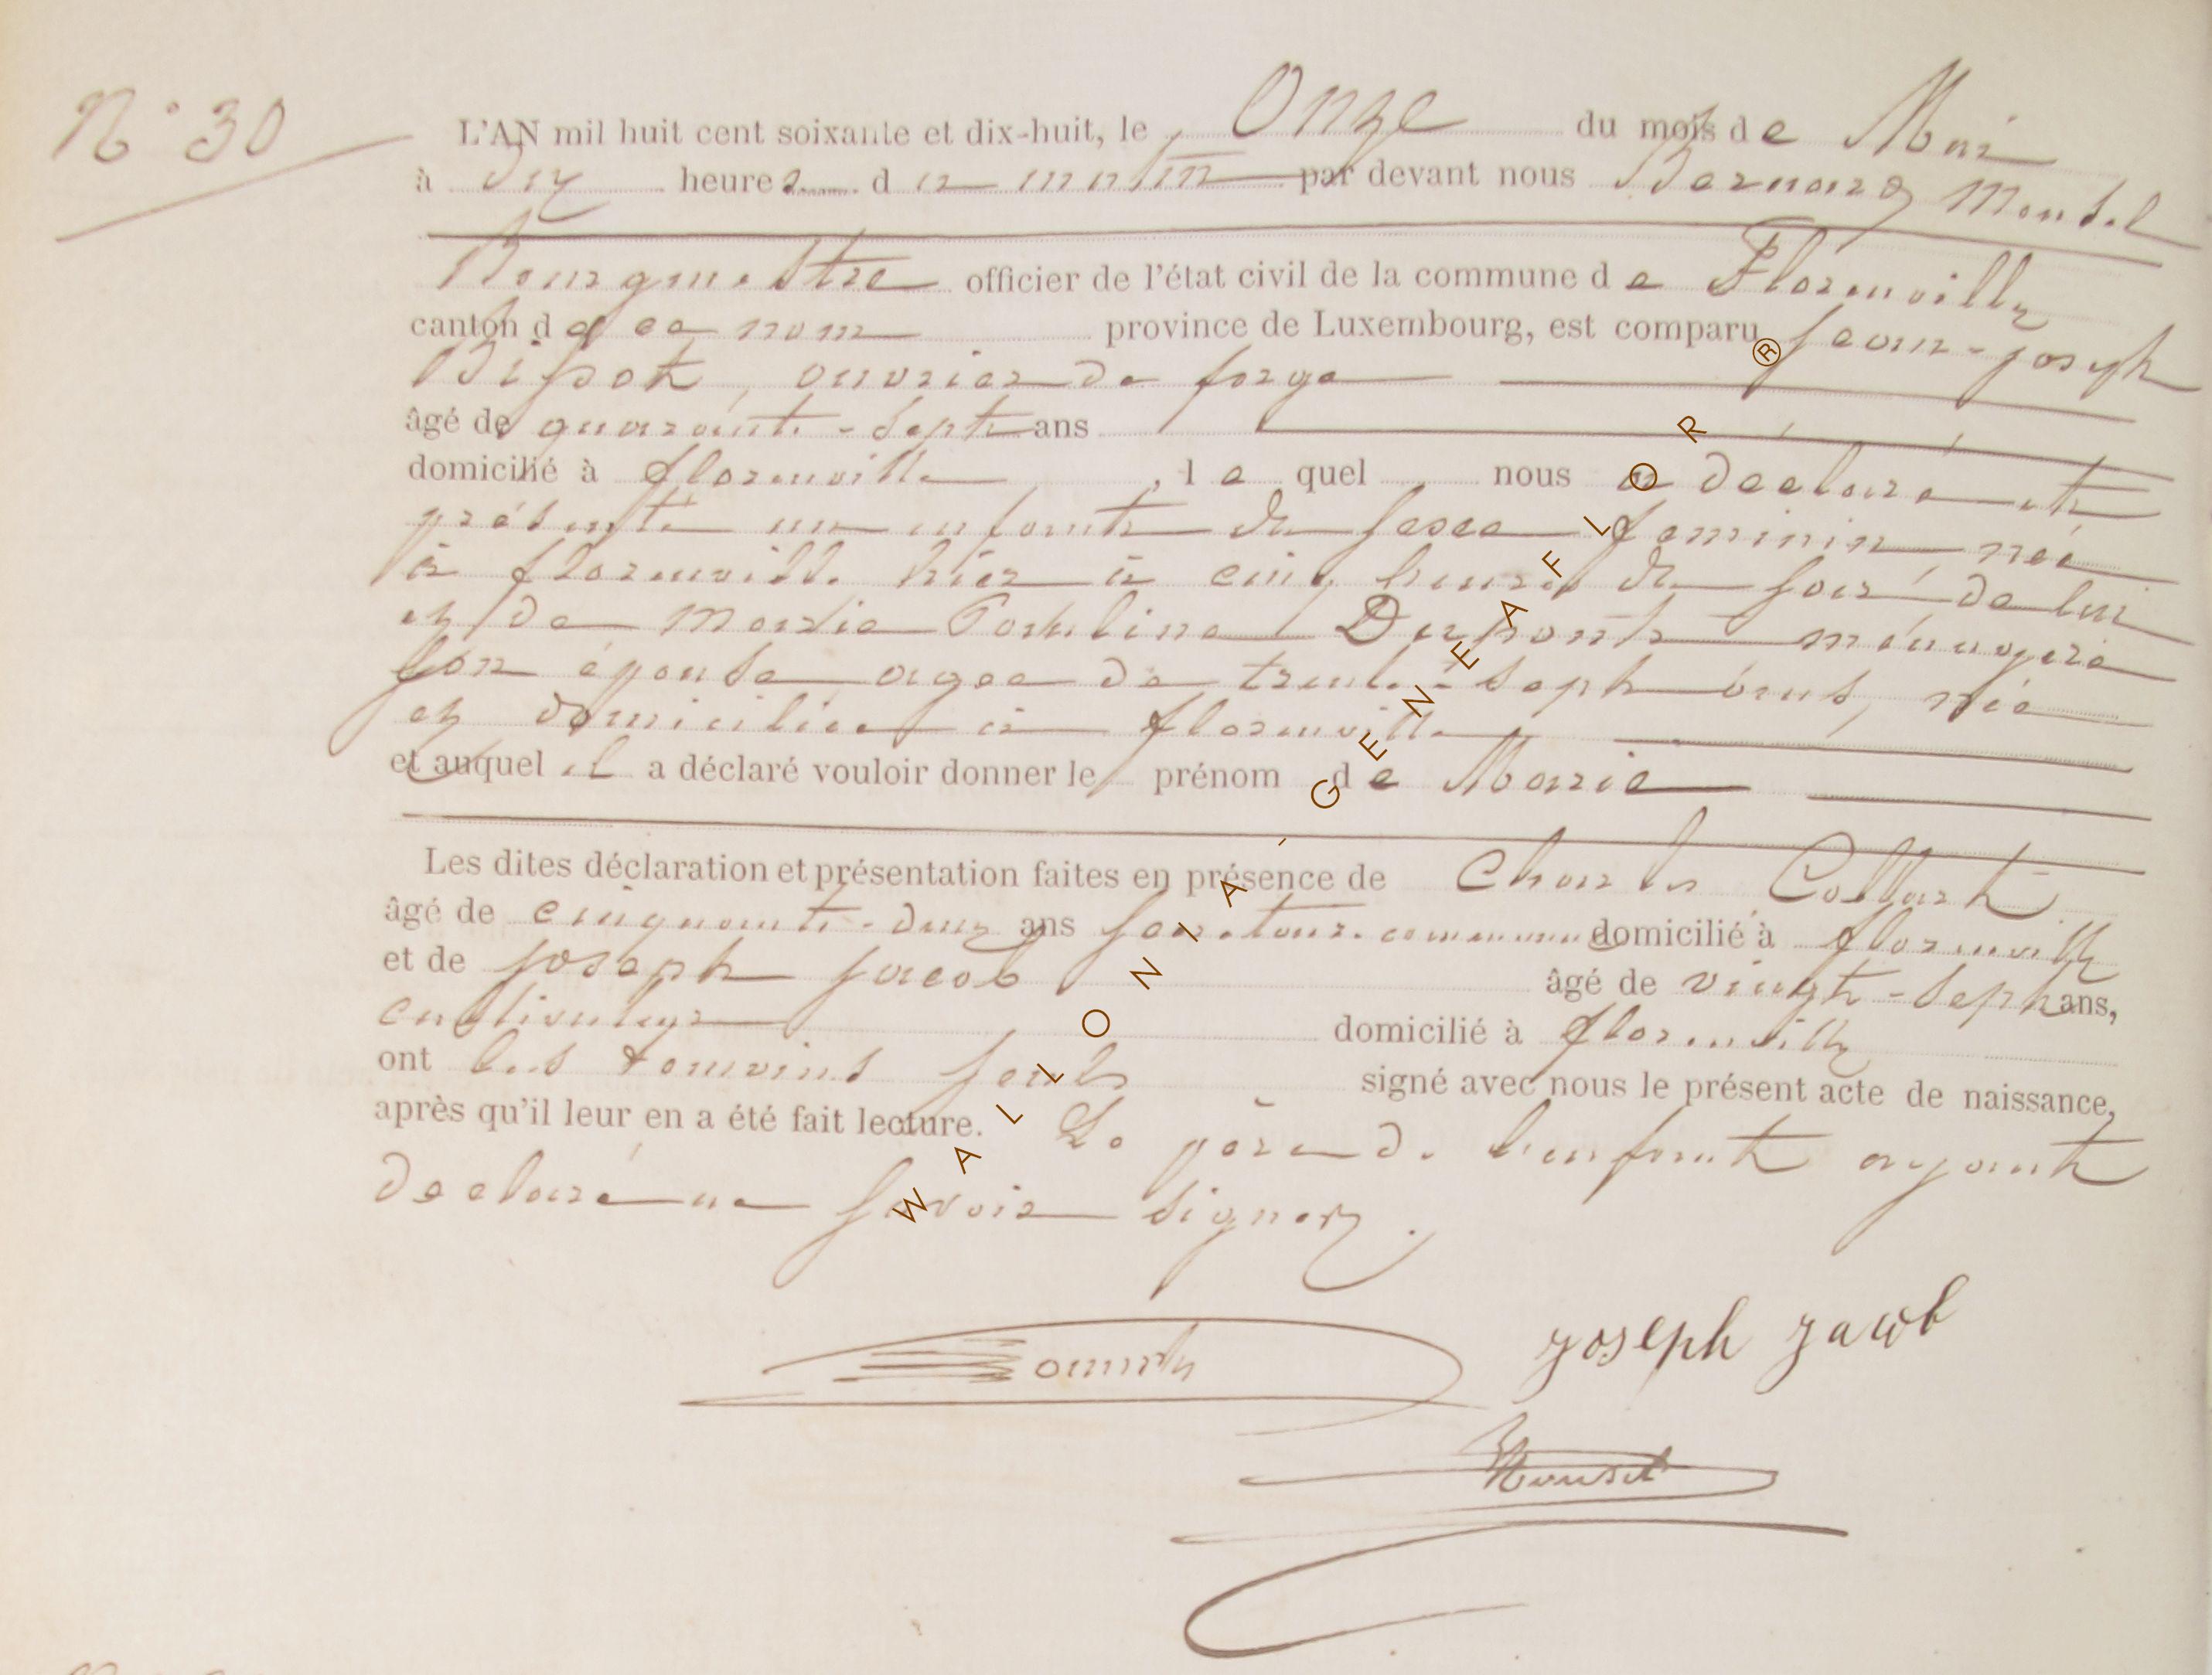 N° 30
L'AN mil huit cent soixante et dix-huit, le Onze du mois de Mai
à Dix heures du matin par devant nous Bernard Mousel
Bourgmestre officier de l'état civil de la commune de Florenville
canton de ce nom province de Luxembourg, est comparu Jean-joseph
Bissot, ouvrier de forge
âgé de quarante-sept ans
domicilié à florenville, lequel nous a déclaré et
présenté un enfant du sexe feminin née
à florenville hier à cinq heures du soir, de lui
et de Marie Pauline Dupont ménagère
son épouse agee de trente-sept ans, née
et domiciliée à florenville
et auquel il a déclaré vouloir donner le prénom de Marie
Les dites déclaration et présentation faites en présence de Charles Collart
âgé de cinquante-deux ans secretaire communal domicilié à florenville
et de joseph jacob âgé de vingt-sept ans,
cultivateur domicilié à florenville
ont les temoins seuls signé avec nous le présent acte de naissance,
après qu'il leur en a été fait lecture. Le père de l'enfant ayant
declaré ne savoir signer.
joseph jacob
Mousel
WALLONIA-GENEAFLOR®